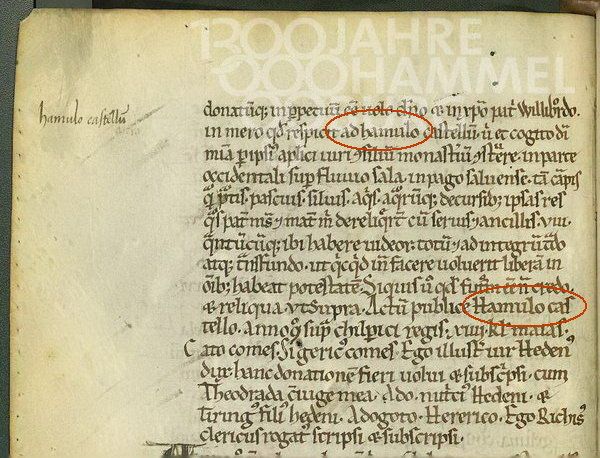 1300 JAHRE
HAMMEL
hamulo castellū
donatūq; in ppetuū eē uolo dn̄o & in xp̄o patͥ Willibꝛdo.
in mero qd respicit ad hamulo castellū ū et cogito di
mia p ipsiꝰ aplici iuri ⁊ filiū monastiū ⁊ stꝛe. in parte
occidentali sup fluuio sala. in pago saluense. tā cāpis
pꝛatis. pascuis. siluis. aq̄s. aq̄rūq; decursib; ipsas res
pat mꝰ ⁊ mat m̄ dereliqͬt cū seruis ⁊ ancillis. viii.
ibi habere uideoꝛ. totū ⁊ ad integrū
atq; tͣnsfundo. ut qcqd in facere uoluerit liberā in
oīb; habeat potestatē. Siquis ū qd credo.
& reliqua. vt supra. Actū publice Hamulo cas
tello. anno sup chilpici regis. xiiii. kl maias.
Cato comes. Sigericꝰ comes. Ego illustͤ uir Hedenꝰ
dux hanc donatione fieri uolui & subscͥpsi. cum
Theodrada ciuge mea. Ado. nutͥcꝰ Hedeni. &
tiringꝰ filiꝰ hedeni. Adogoto. Hererico. Ego Richisꝰ
clericus rogatꝰ scripsi & subscripsi.